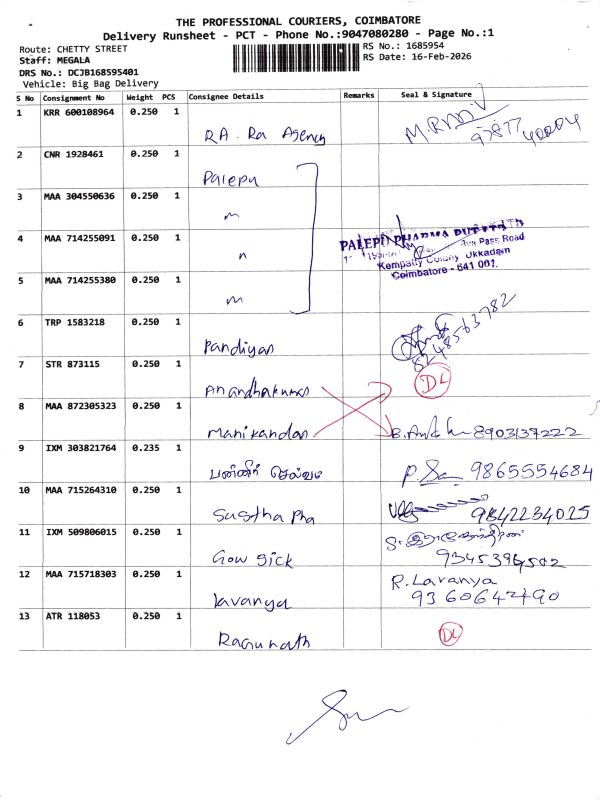 THE PROFESSIONAL COURIERS, COIMBATORE
Delivery Runsheet - PCT - Phone No.:9047080280 - Page No.:1
Route: CHETTY STREET
RS No.: 1685954
Staff: MEGALA
RS Date: 16-Feb-2026
DRS No.: DCJB168595401
Vehicle: Big Bag Delivery
S No Consignment No Weight PCS Consignee Details Remarks Seal & Signature
1 KRR 600108964 0.250 1
RA. Ra Agency
2 CNR 1928461 0.250 1
Palepu
3 MAA 304550636 0.250 1
4 MAA 714255091 0.250 1
PALEPU PHARMA
Pass Road
5 MAA 714255380 0.250 1
Kempatty Colony, Ukkadam
Coimbatore - 641 001.
6 TRP 1583218 0.250 1
Pandiyan 8248563782
7 STR 873115 0.250 1
Anandhakumar DL
8 MAA 872305323 0.250 1
Manikandan 8903137222
9 IXM 303821764 0.235 1
பன்னீர் செல்வம் 9865554684
10 MAA 715264310 0.250 1
Sastha Pha 9842234025
11 IXM 509806015 0.250 1
Gowsick
12 MAA 715718303 0.250 1
R. Lavanya
lavanya
13 ATR 118053 0.250 1
Ragunath DL